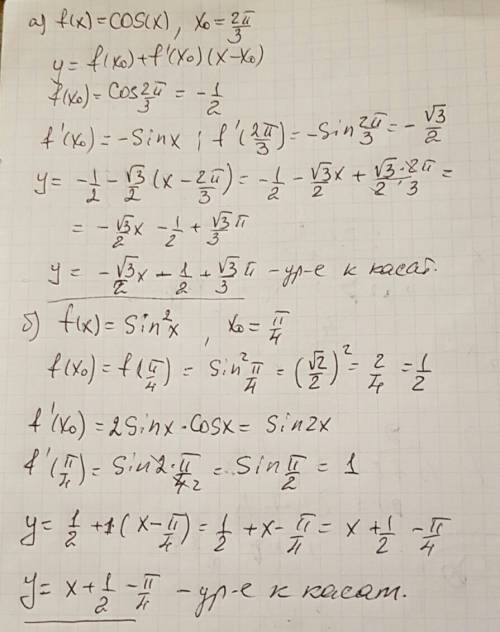 а) f(x) = cos(x), x₀ = 2π/3
y = f(x₀) + f'(x₀)(x-x₀)
f(x₀) = cos 2π/3 = -1/2
f'(x₀) = -sinx ; f'(2π/3) = -sin 2π/3 = -√3/2
y = -1/2 - √3/2 (x - 2π/3) = -1/2 - √3/2 x + √3·2π/2·3 =
= -√3/2 x - 1/2 + √3/3 π
y = -√3/2 x - 1/2 + √3/3 π - ур-е к касат.
б) f(x) = sin²x, x₀ = π/4
f(x₀) = f(π/4) = sin² π/4 = (√2/2)² = 2/4 = 1/2
f'(x₀) = 2sinx·cosx = sin2x
f'(π/4) = sin2·π/4₂ = sin π/2 = 1
y = 1/2 + 1(x - π/4) = 1/2 + x - π/4 = x + 1/2 - π/4
y = x + 1/2 - π/4 - ур-е к касат.